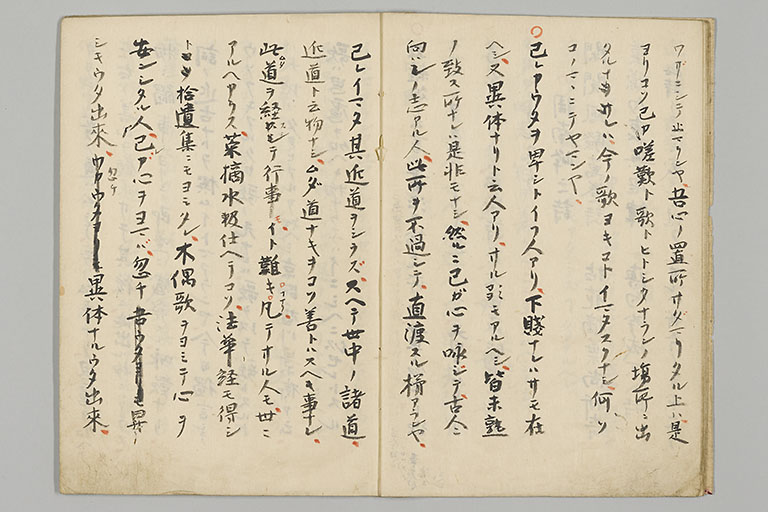 ワガコヽニテ止マランヤ、吾心ノ置所サダマリタル上ハ是
ヨリコソ己ガ嗟歎ト歌トヒトシクナラン場所ニ出
タルナラメ サレハ今ノ歌ヨキコトイマタスクナシ何ソ
コノマヽニテヤマンヤ、
○己レカウタヲ卑シトイフ人アリ、下賤ナレハサモ在
ヘシ又異体ナリト云人アリ、サル㕝モアルヘシ皆未熟
ノ致ス所ナレハ是非モナシ、然ルニ己ガ心ヲ咏シテ古人ニ
向ハンノ志アル人、此所ヲ不過シテ直渡スル様アランヤ、
己レイマタ其近道ヲシラズ、スヘテ世中ノ諸道
近道ト云物ナシ、ムダ道ナキヲコソ善トハスヘキ事ナレ
此道ヲ経ズシテ行事イト難キ、凡テサル人モ世ニ
アルヘカラス、菜摘水汲仕ヘテコソ法華経モ得シ
ト拾遺集ニモヨミタレ、木偶歌ヲヨミテ心ヲ
安ンシタル人、己ガ心ヲヨマバ、忽チ卑
シキウタ出来、忽チ異体ナルウタ出来、